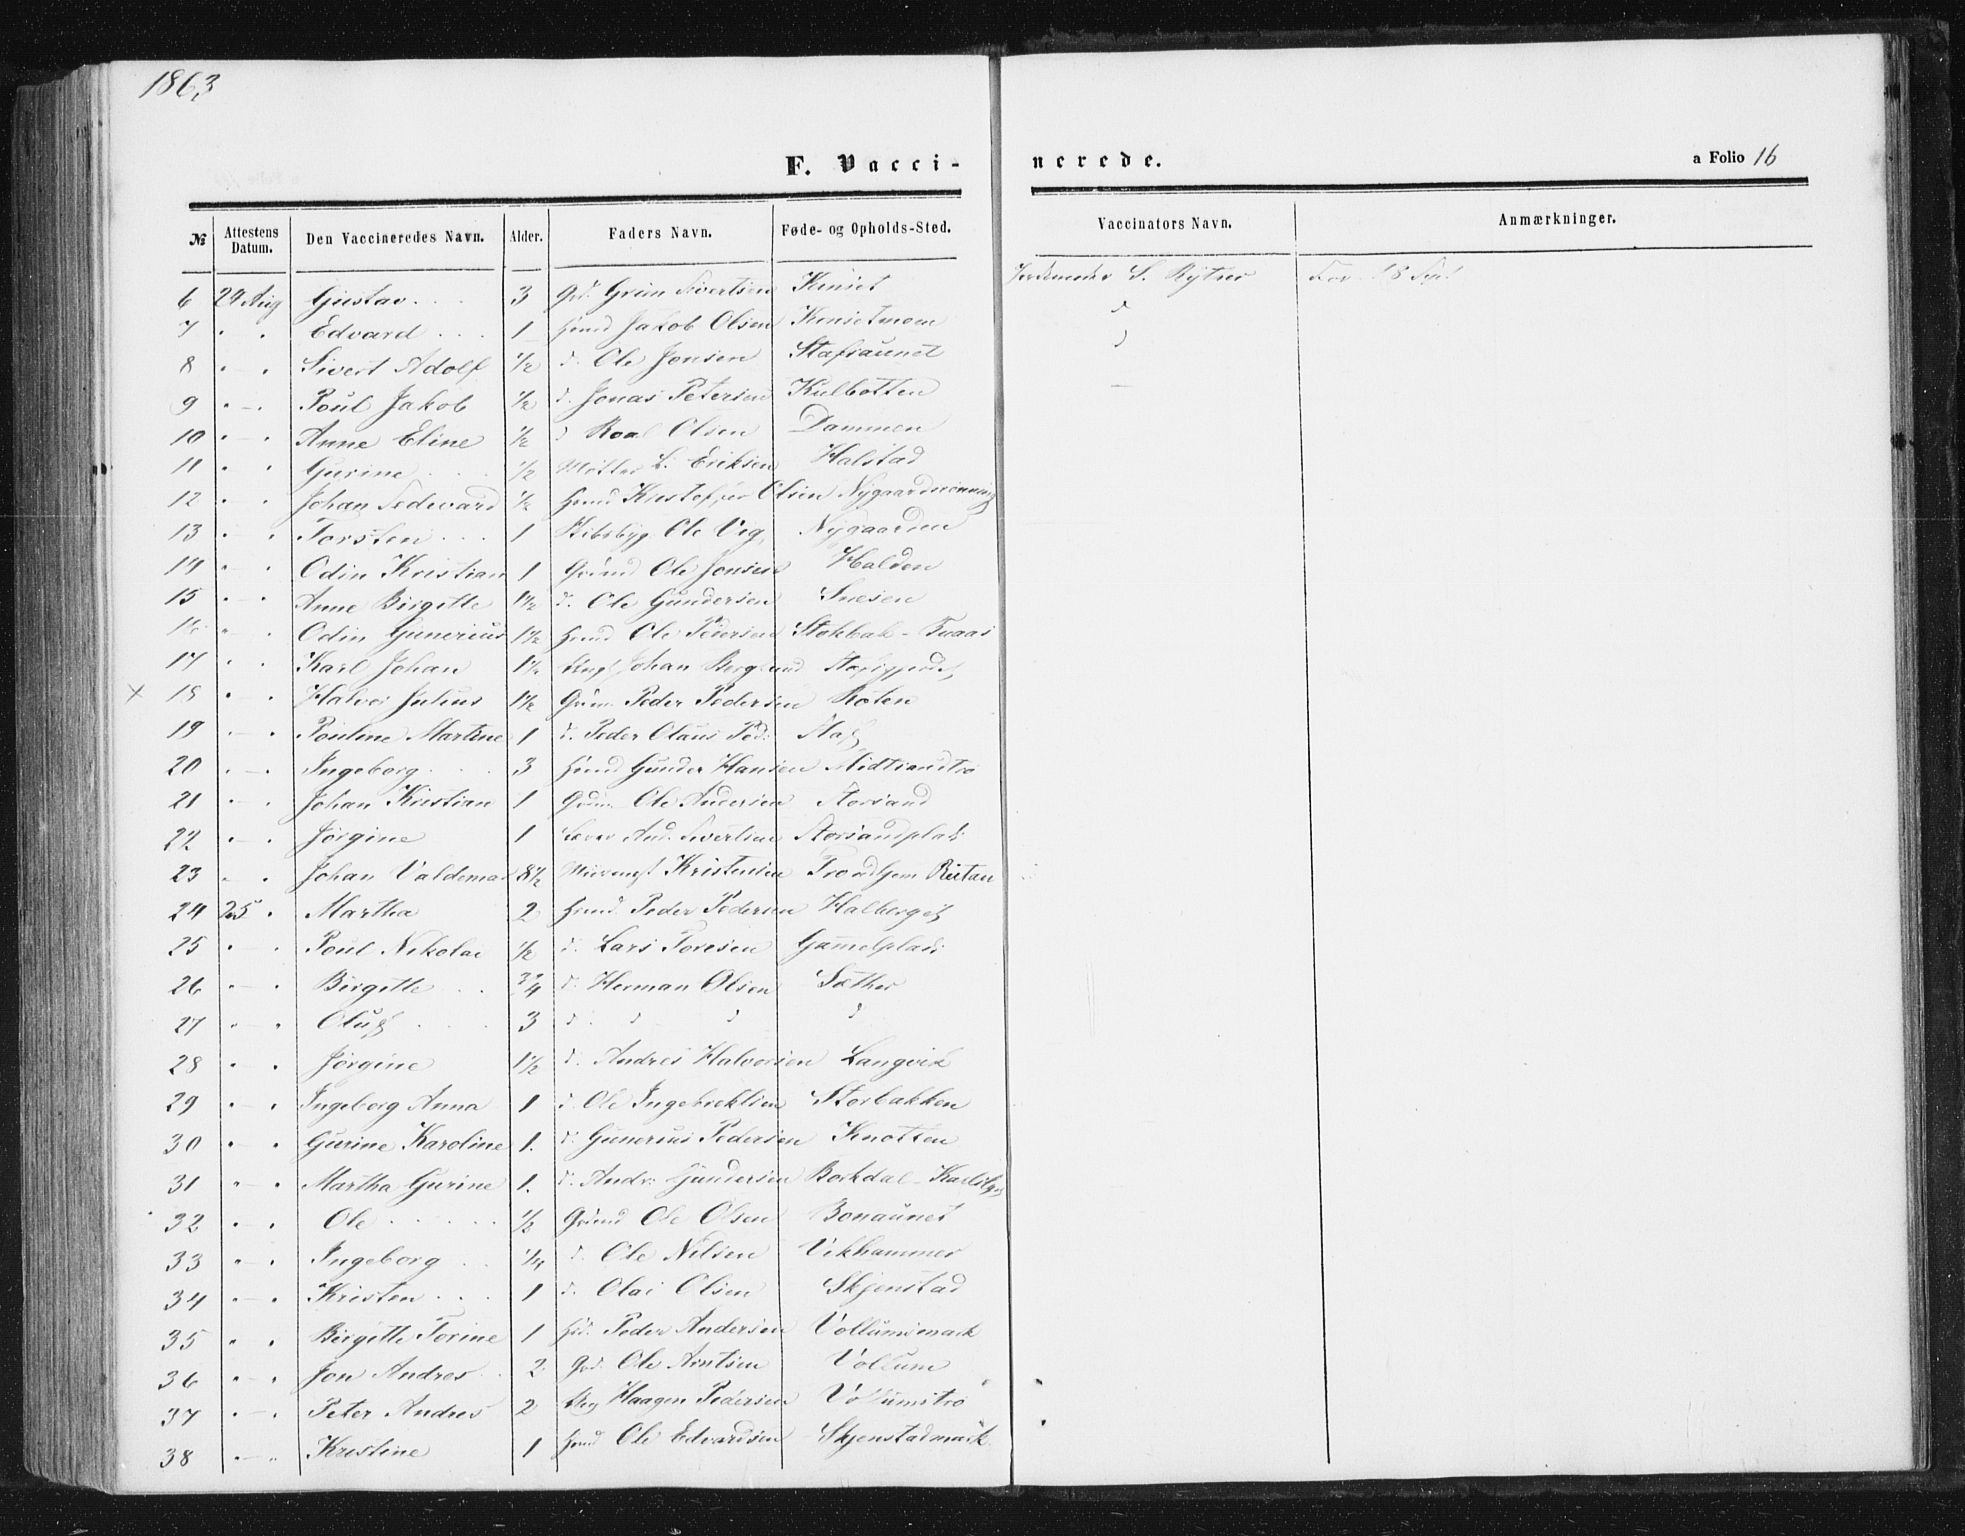 1863
F. Vacci-
nerede.
a Folio 16
№ Attestens Datum. Den Vaccineredes Navn. Alder. Faders Navn. Føde- og Opholds-Sted. Vaccinators Navn. Anmærkninger.
6 24 Aug Gustav 3 Grim Sivertsen
7 " " Edvard 1 Hmd Jakob Olsen
8 " " Sivert Adolf 1/2 d. Ole Jonsen Stafsaunet
9 " " Poul Jakob 1/2 d. Jonas Petersen Kulbotten
10 " " Anne Eline 1/2 d Roal Olsen Dammen
11 " " Gurine 1/2 Møller L. Eriksen Halstad
12 " " Johan Sedevard 1/2 Hmd Kristoffer Olsen
13 " " Torsten 1 Ole Nygaarden
14 " " Odin Kristian 1 Grmd Ole Jonsen Halden
15 " " Anne Birgitte 1 1/2 d. Ole Gundersen Snesen
16 " " Odin Gunerius 1 1/2 Hmd Ole Pedersen
17 " " Karl Johan 1 1/2 Johan Berglund
x 18 " " Halvor Julius 1 1/2 Peder Pedersen Roten
19 " " Pouline Martine 1 d. Peder Olaus Ped:
20 " " Ingeborg 3 Hmd Gunder Hansen Midtsandtrø
21 " " Johan Kristian 1 Ole Andersen Storsand
22 " " Jørgine 1 And. Sivertsen Storsandplads
23 " " Johan Valdemar 8 1/2 Kristensen Trondhjem
24 25 " Martha 2 Hmd. Peder Pedersen Halberget
25 " " Poul Nikolai 1/2 d. Lars Toresen Gammelplads
26 " " Birgitte 3/4 d. Herman Olsen Sæther
27 " " Oluf 3 d. d d d
28 " " Jørgine 1 1/2 d. Andres Halvorsen Langvik
29 " " Ingeborg Anna 1 d. Ole Ingebrektsen Storbakken
30 " " Gurine Karoline 1. d. Gunerius Pedersen Knotten
31 " " Martha Gurine 1. d. Andr: Gundersen
32 " " Ole 1/2 Grmd Ole Olsen Bonaunet
33 " " Ingeborg 1/4 d. Ole Nilsen Vikhammer
34 " " Kristen 1 d. Olai Olsen Skjenstad
35 " " Birgitte Torine 1 Peder Andersen Vollumsmark
36 " " Jon Andres 2 Ole Arntsen Vollum
37 " " Peter Andres 2 Haagen Pedersen Vollumstrø
38 " " Kristine 1 Hmd Ole Edvardsen Skjenstadmark